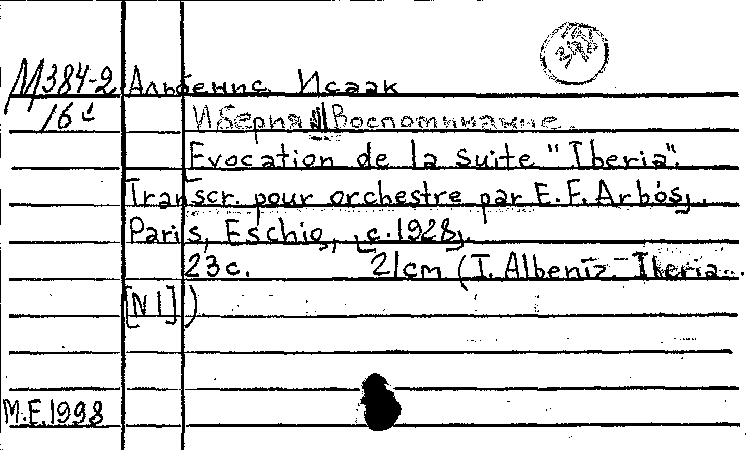 М384-2 Альбенис Исаак
16 с
Иберия Воспоминание.
Evocation de la suite "Iberia".
Transcr. pour orchestre par E.F. Arbós.
Paris, Eschig, [c. 1928].
23 c. 21cm (I. Albeniz - Iberia..
[N 1])
М.Е.1998